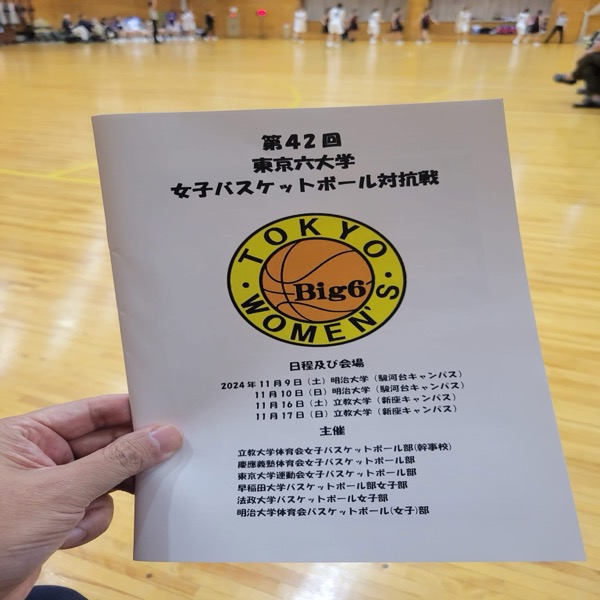 第42回
東京六大学
女子バスケットボール対抗戦
TOKYO
Big6
WOMEN'S
日程及び会場
2024年11月9日(土)明治大学(駿河台キャンパス)
11月10日(日)明治大学(駿河台キャンパス)
11月16日(土)立教大学(新座キャンパス)
11月17日(日)立教大学(新座キャンパス)
主催
立教大学体育会女子バスケットボール部(幹事校)
慶應義塾体育会女子バスケットボール部
東京大学運動会女子バスケットボール部
早稲田大学バスケットボール部女子部
法政大学バスケットボール女子部
明治大学体育会バスケットボール(女子)部